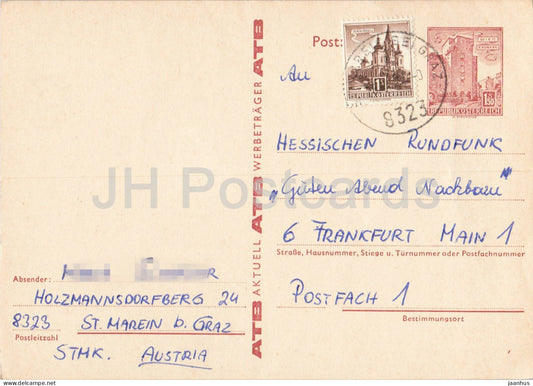 Post:
An
HESSISCHEN RUNDFUNK
"Guten Abend Nachbarn"
6 FRANKFURT MAIN 1
Straße, Hausnummer, Stiege u. Türnummer oder Postfachnummer
POSTFACH 1
Bestimmungsort
Absender:
HOLZMANNSDORFBERG 24
8323 ST. MAREIN b. GRAZ
Postleitzahl
STMK. AUSTRIA
ATB AKTUELL ATB WERBETRÄGER ATB
REPUBLIK ÖSTERREICH
REPUBLIK ÖSTERREICH
GRAZ
8323
JH Postcards
www.jaanhus.com